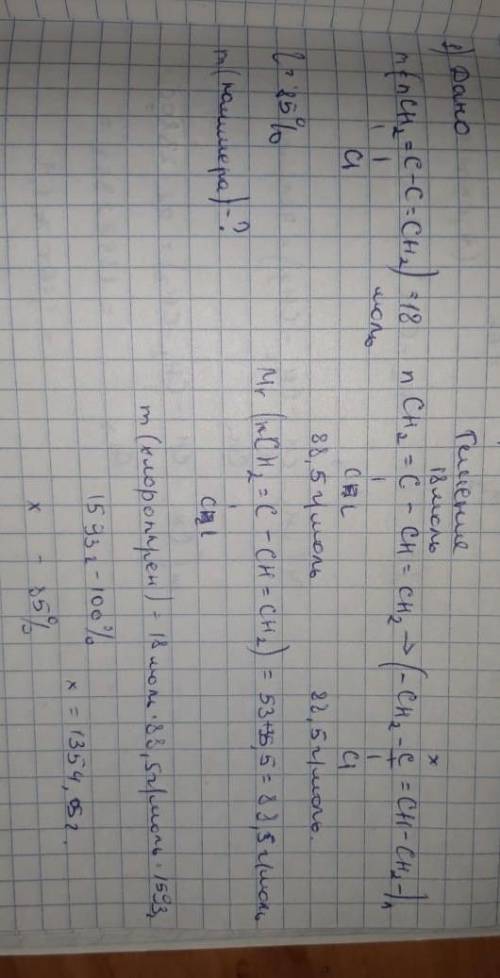 8) Дано
n(nCH₂ = C - C = CH₂) = 18 моль
Cl
η = 85%
m(полимера) - ?
Решение
18 моль x
nCH₂ = C - CH = CH₂ → (-CH₂ - C = CH - CH₂-)n
Cl Cl
88,5 г/моль 88,5 г/моль.
Mr (nCH₂ = C - CH = CH₂) = 53+35,5 = 88,5 г/моль
Cl
m(хлоропрен) = 18 моль · 88,5 г/моль = 1593г
1593г - 100%
x - 85%
x = 1354,05г.